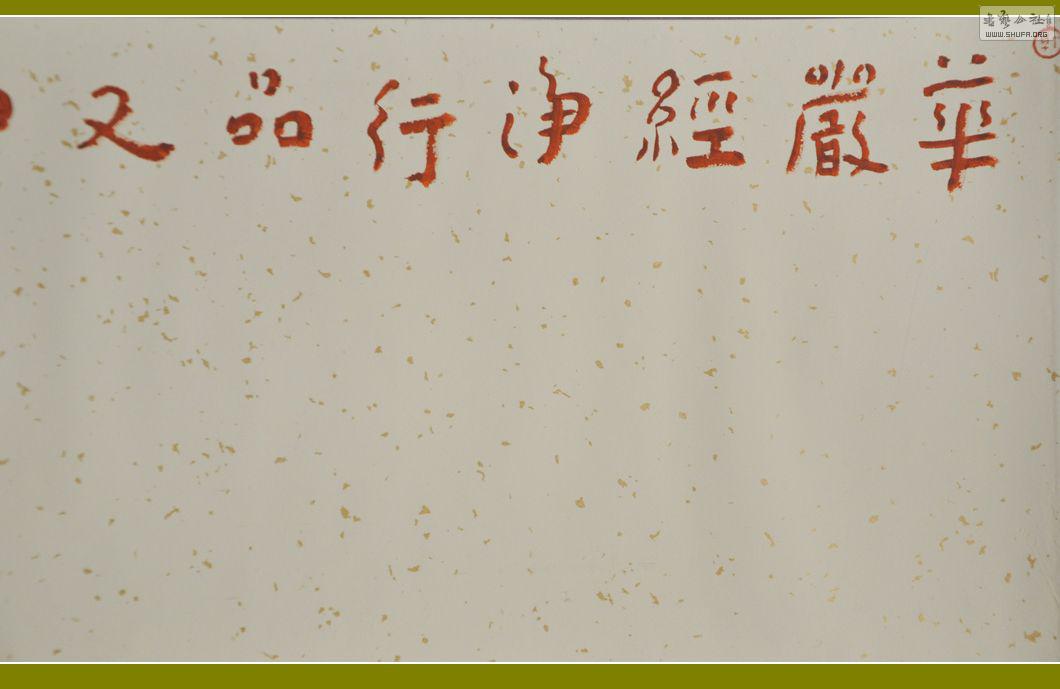 華嚴經淨行品又
書藝公社
WWW.SHUFA.ORG